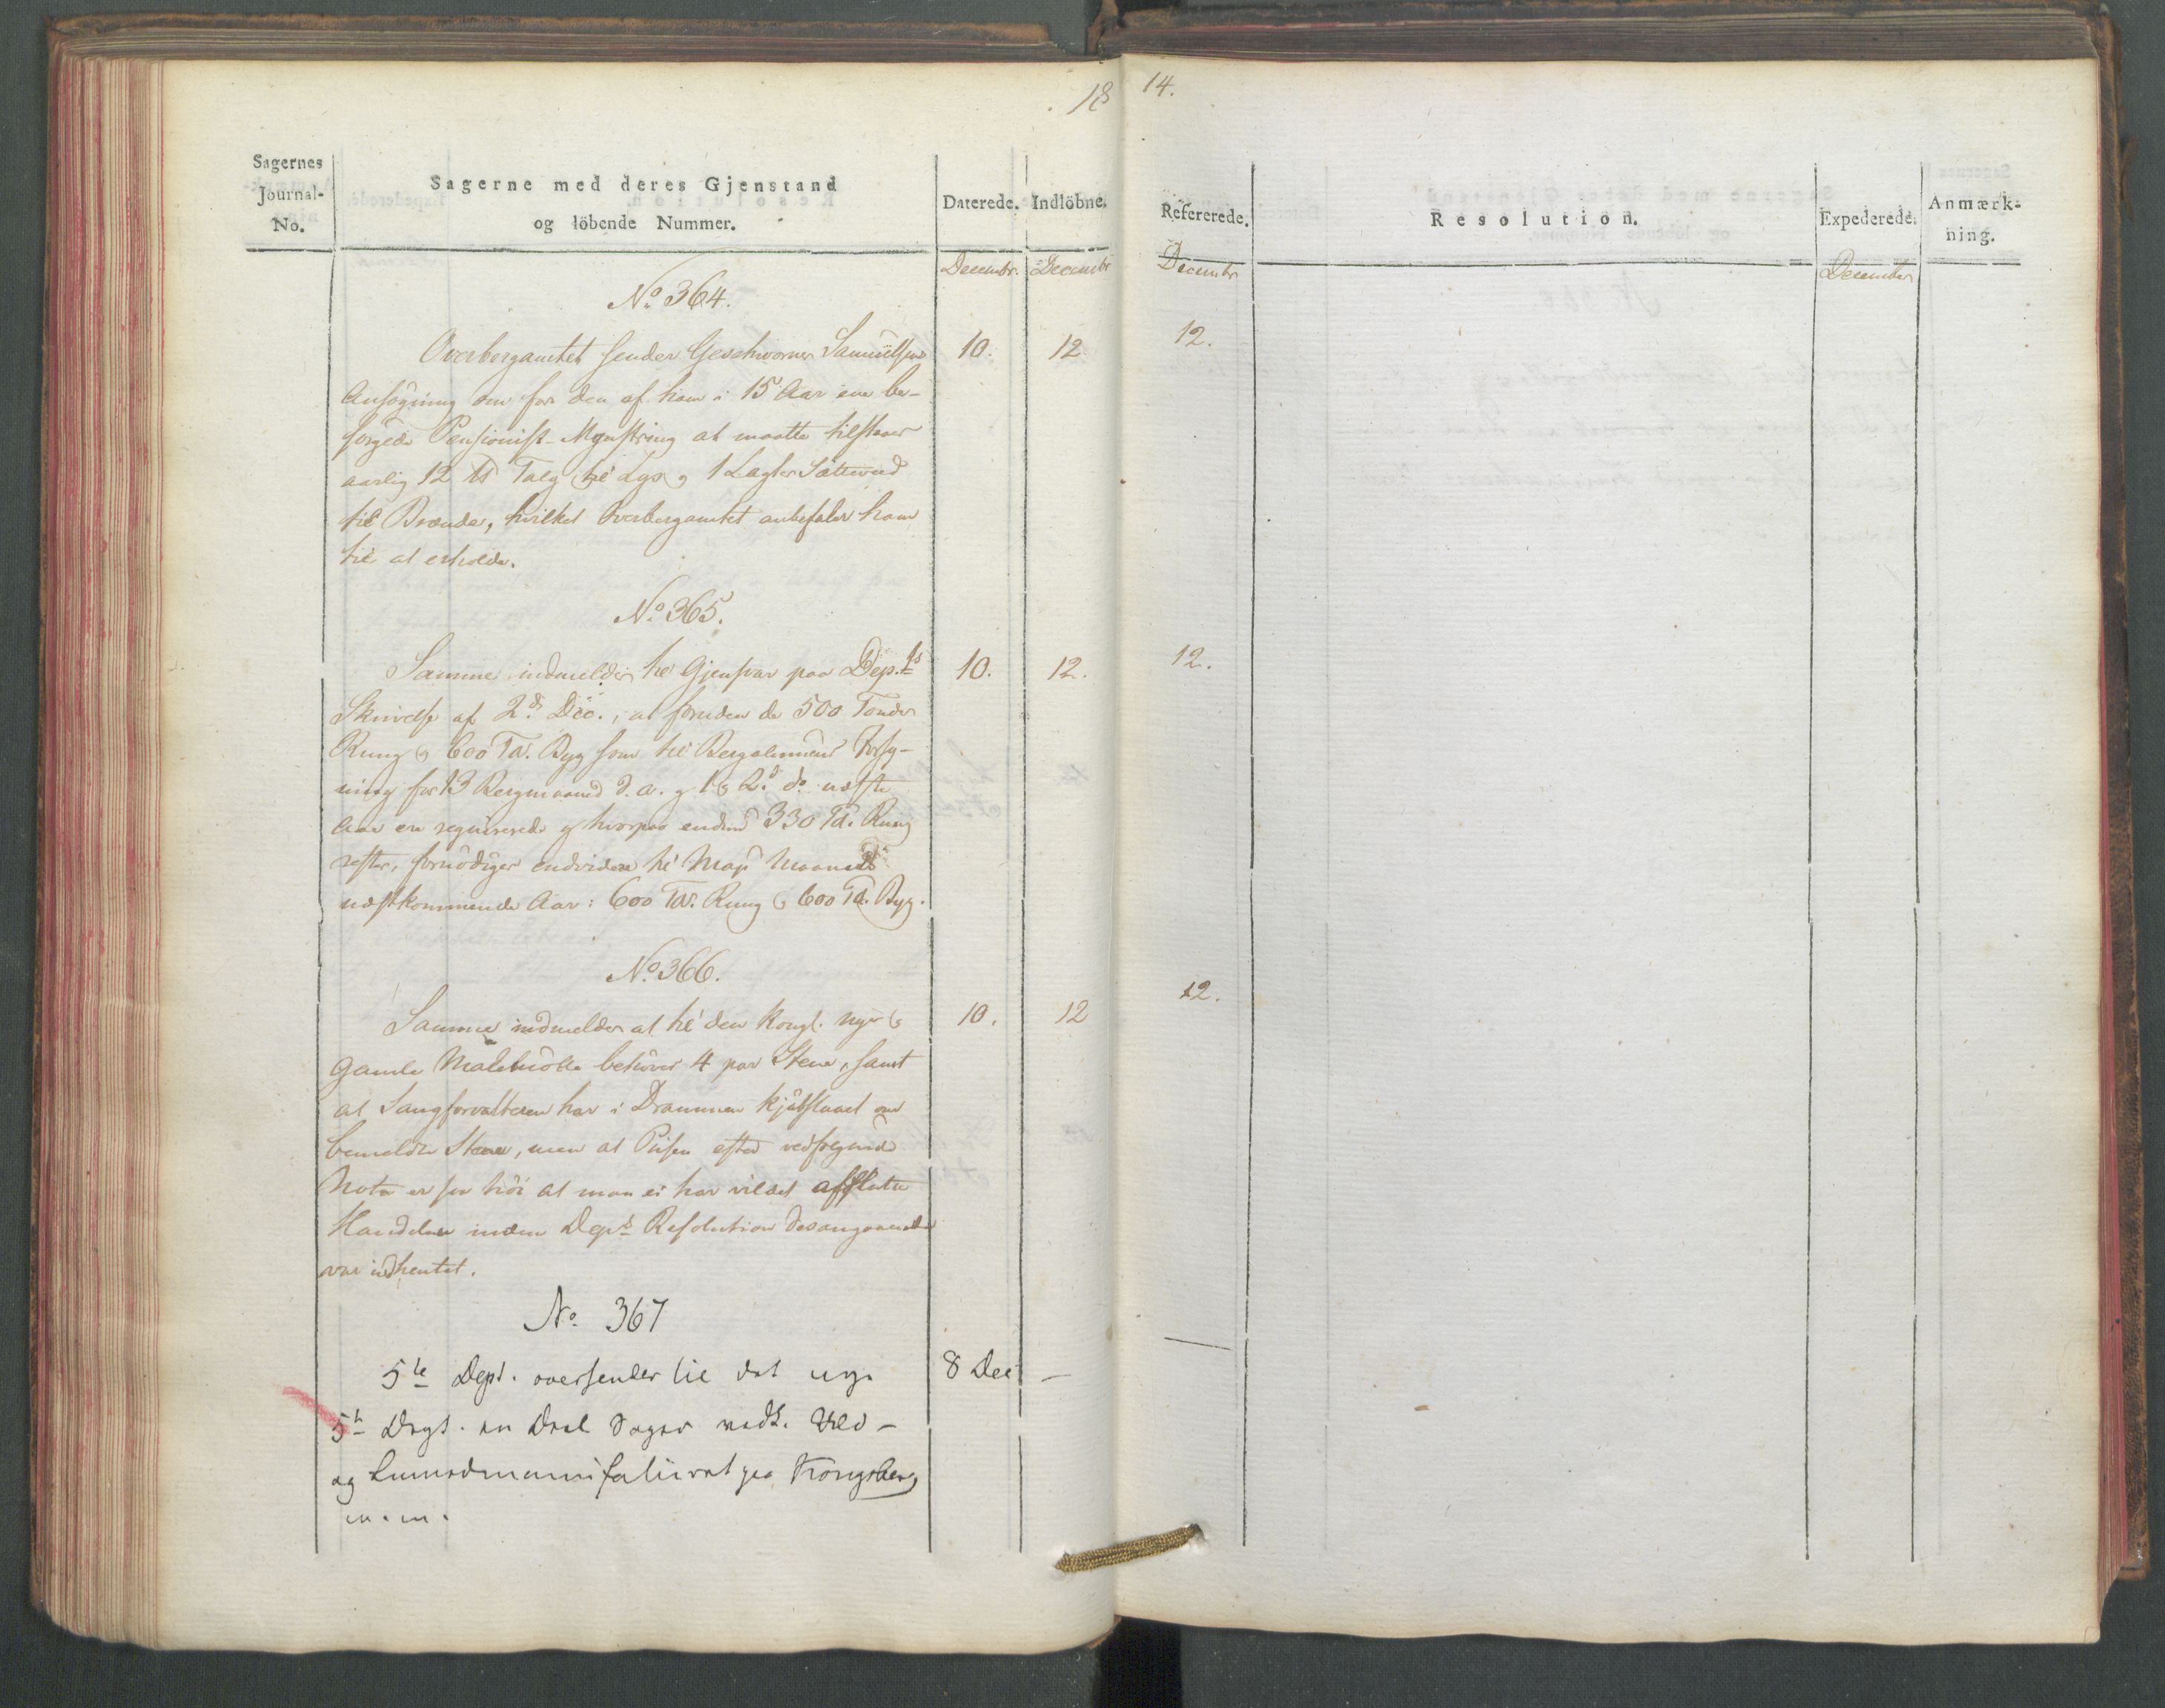 18
14.
Sagernes
Journal-
No.
Sagerne med deres Gjenstand
og löbende Nummer.
Daterede.
Indlöbne.
Refererede.
Resolution.
Expederede.
Anmærk-
ning.
Decembr.
Decembr
Decembr
December
No. 364.
Overbergamtet sender Geschworner Samuelsens
10.
12
12.
Ansøgning om for den af ham i 15 Aar ene be-
sørgede Pensionist-Mynstring at maatte tilstaaes
aarlig 12 ℔ Talg til Lys og 1 Lagter Sætteved
til Brænde, hvilket Overbergamtet anbefaler ham
til at erholde.
No. 365.
Samme indmelder til Gjensvar paa Dep.ts
10.
12.
12.
Skrivelse af 2d. Dec., at foruden de 500 Tønder
Rug og 600 Tdr. Byg som til Bergalmuens Forsy-
ning for 13 Bergmaaned d. a. og 1 og 2d. do næste
Aar ere requirerede og hvorpaa endnu 330 Td. Rug
rester, fornødiges endvidere til Maji Maaned
næstkommende Aar: 600 Tdr. Rug og 600 Td. Byg.
No. 366.
Samme indmelder at til den kongl. nye og
10.
12
12.
gamle Malemølle behøves 4 par Stene, samt
at Saugforvalteren har i Drammen kjøbslaaet om
bemeldte Stene, men at Prisen efter vedfølgende
Nota er saa høi at man ei har villet afslutte
Handelen inden Depts Resolution desangaaende
var indhentet.
No. 367
5te Dept. oversender til det nye
8 Dec
—
5te Dept. en Deel Sager vedk. Uld-
og Linnedmanufacturet paa Kongsberg
m. m.